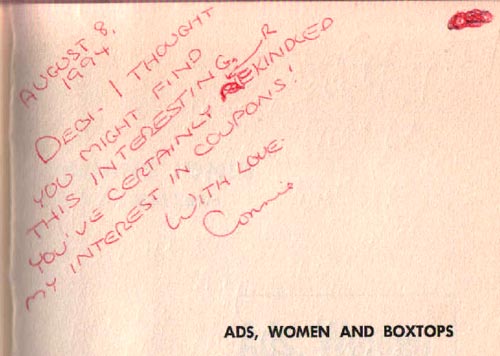 AUGUST 8,
1994.
DEBI- I THOUGHT
YOU MIGHT FIND
THIS INTERESTING,
YOU'VE CERTAINLY REKINDLED
MY INTEREST IN COUPONS!
WITH LOVE
Connie
ADS, WOMEN AND BOXTOPS